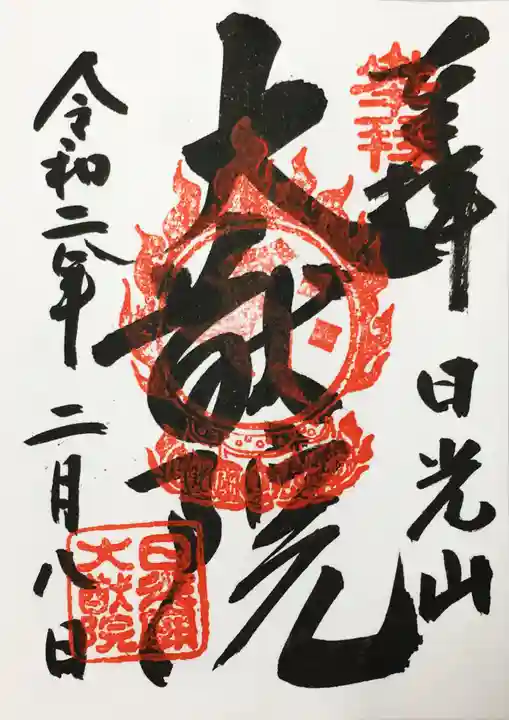 奉拝
日光山
大猷院
令和二年二月八日
日光山
大猷院